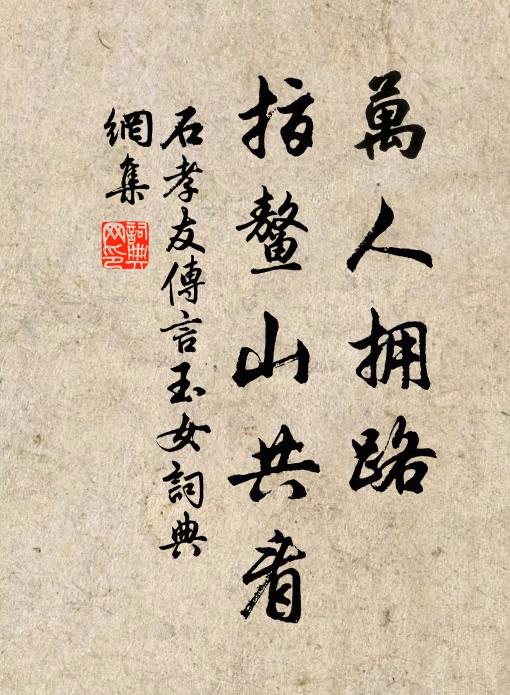 萬人拥路
指鳌山共看
石孝友傳言玉女詞典
網集
詞典
网印